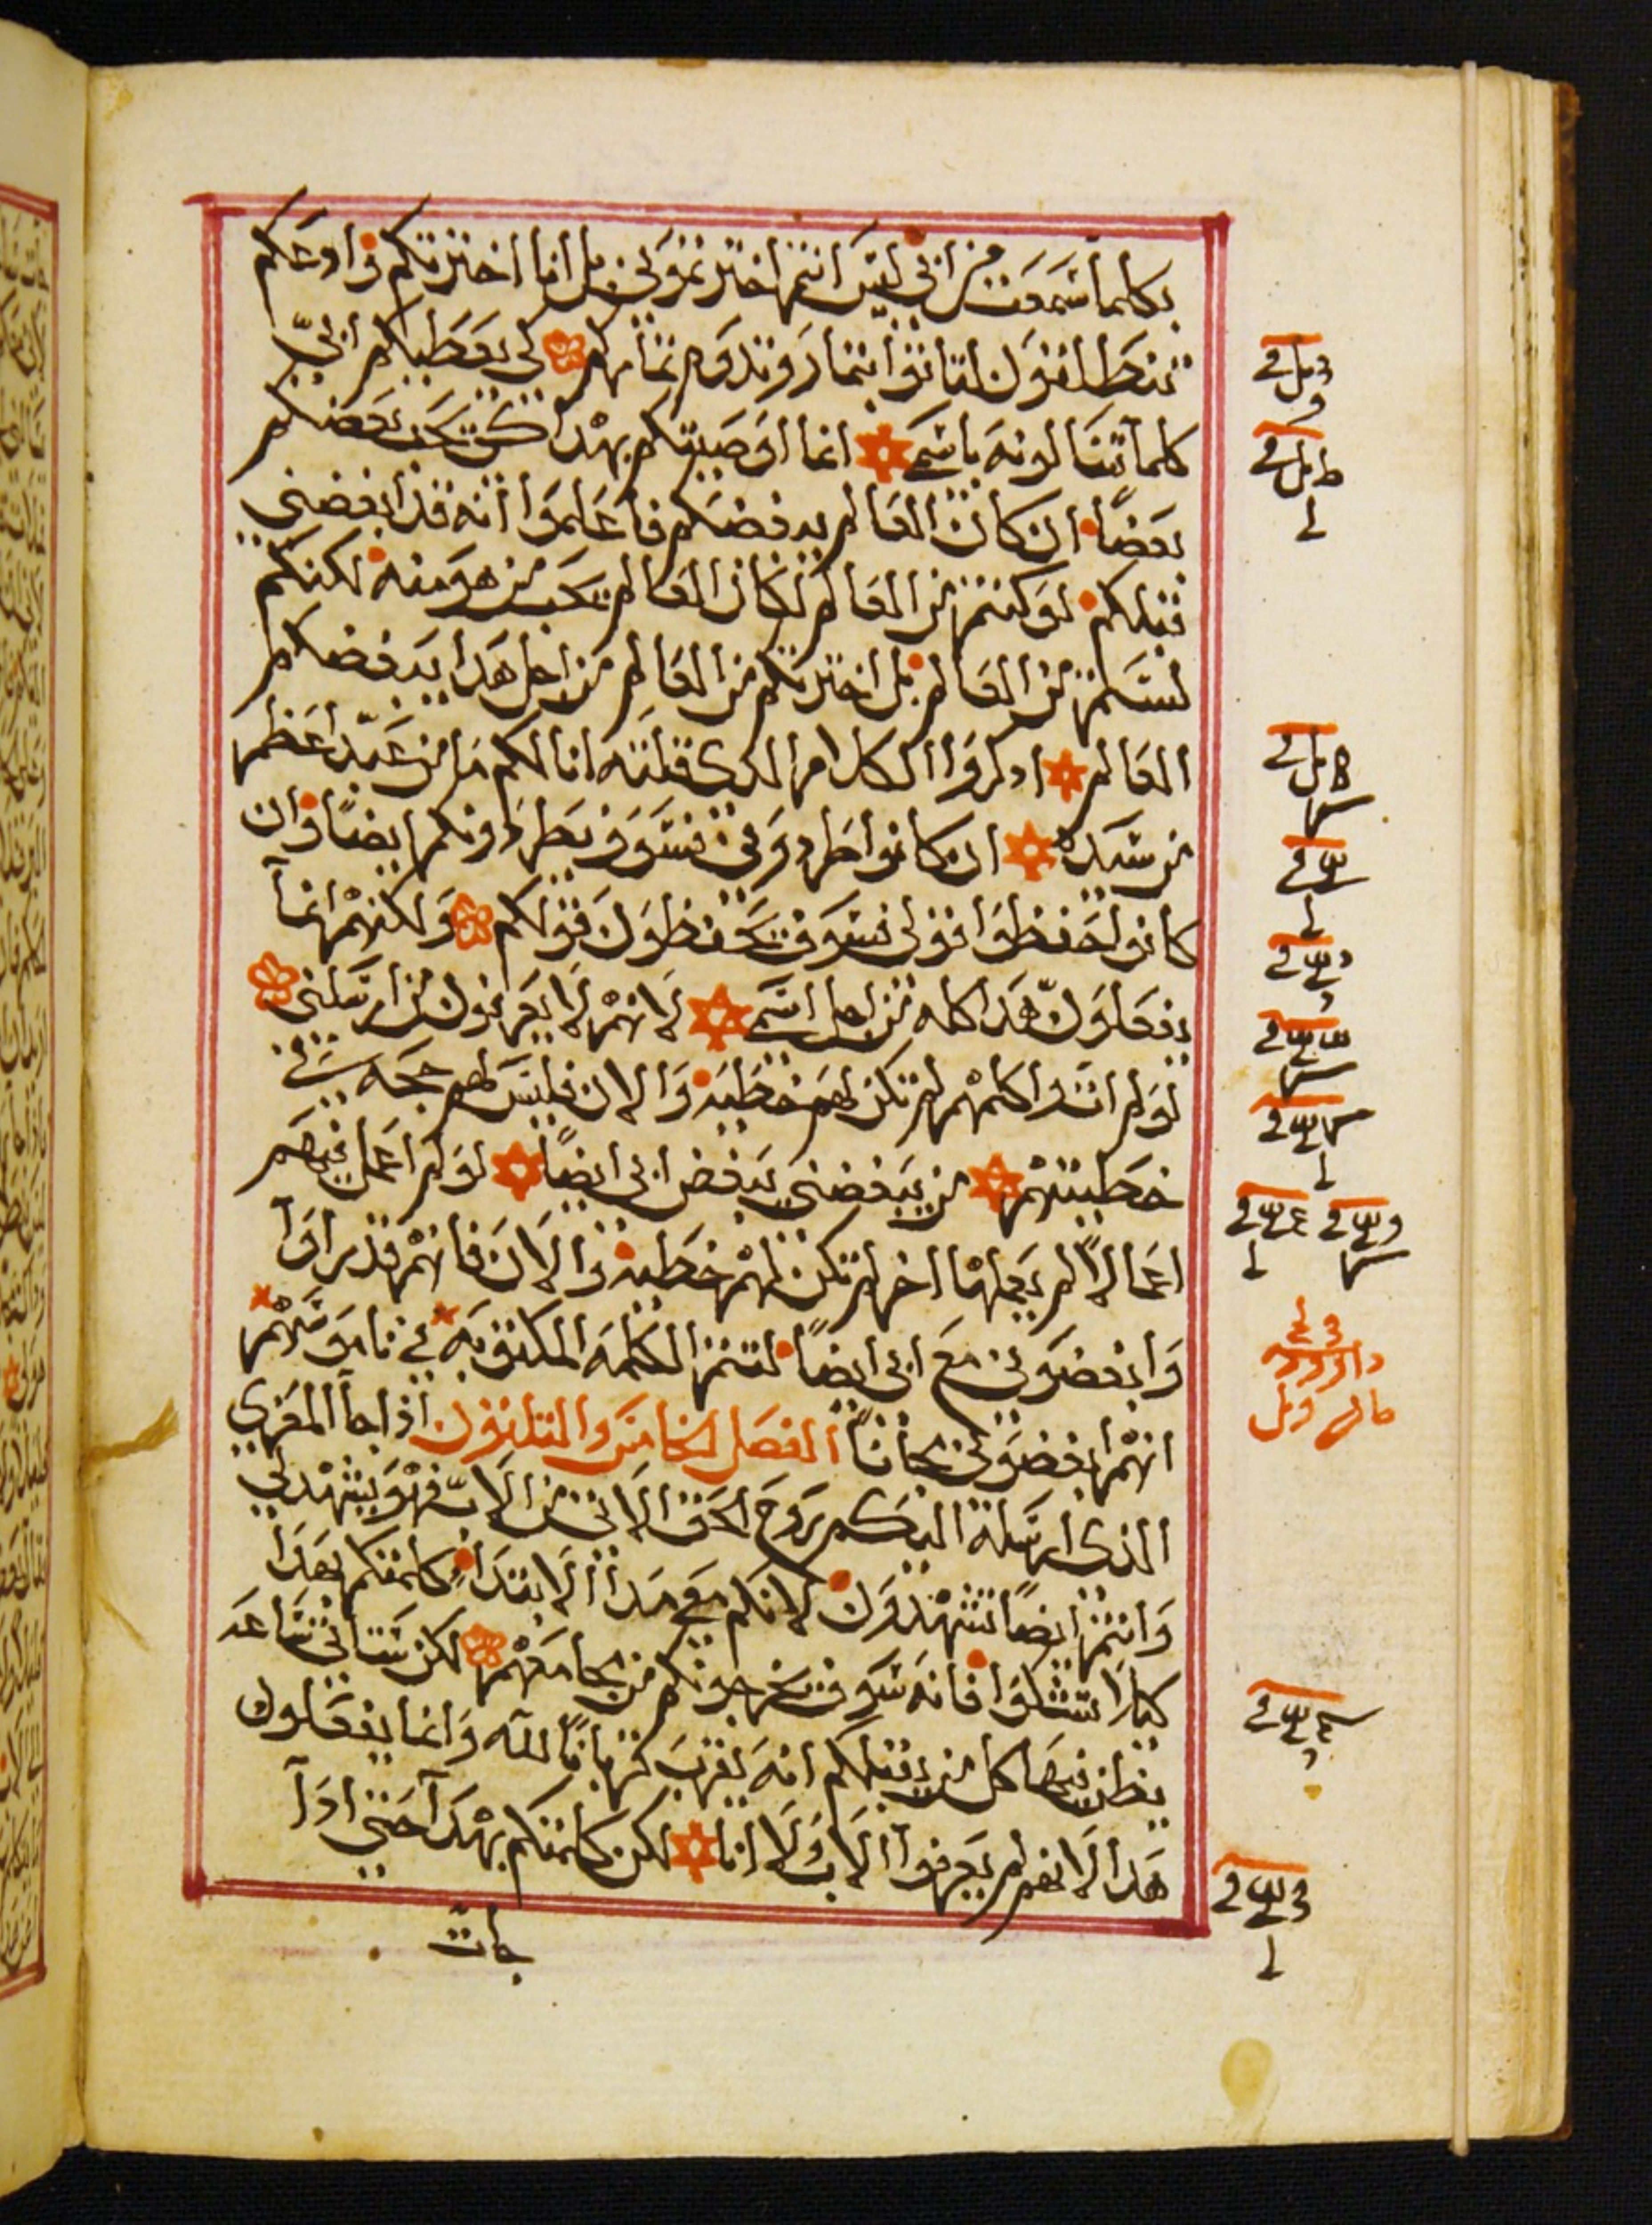 بكلما سمعت من ابي ليس انتم اخترتموني بل انا اخترتكم وادعكم
تنطلقون لتاتوا بثمار وتدوم ثماركم لكي يعطيكم ابي
كلما تسالونه باسمي انما اوصيتكم بهذا لكي يحب بعضكم
بعضا ان كان العالم يبغضكم فاعلموا انه قد ابغضني
قبلكم لو كنتم من العالم لكان العالم يحب من هو منه لكنكم
لستم من العالم بل اخترتكم من العالم من اجل هذا يبغضكم
العالم اذكروا الكلام الذي قلته انا لكم ما من عبد اعظم
من سيده ان كانوا طردوني فسوف يطردونكم ايضا وان
كانوا حفظوا قولي فسوف يحفظون قولكم ولكنهم انما
يفعلون هذا كله من اجل اسمي لانهم لا يعرفون من ارسلني
لو لم ات واكلمهم لم تكن لهم خطية والان فليس لهم حجه في
خطيتهم من يبغضني يبغض ابي ايضا لو لم اعمل فيهم
اعمالا لم يعملها اخر لم تكن لهم خطية والان فانهم قد راوا
وابغضوني مع ابي ايضا لتتم الكلمه المكتوبه في ناموسهم
انهم ابغضوني مجانا الفصل الخامس والثلثون اذا جا المعزي
الذي ارسله اليكم روح الحق الاتي من الاب فهو يشهد لي
وانتم ايضا تشهدون لانكم معي مدا الابتدا كلمتكم بهذا
كيلا تشكوا فانه سوف يخرجونكم من مجامعهم لكن ستاتي ساعه
يظن فيها كل من يقتلكم انه يقرب قربانا لله وانما يفعلون
هذا لانهم لم يعرفوا الاب ولا انا لكن كلمتكم بهذا حتى اذا
جات